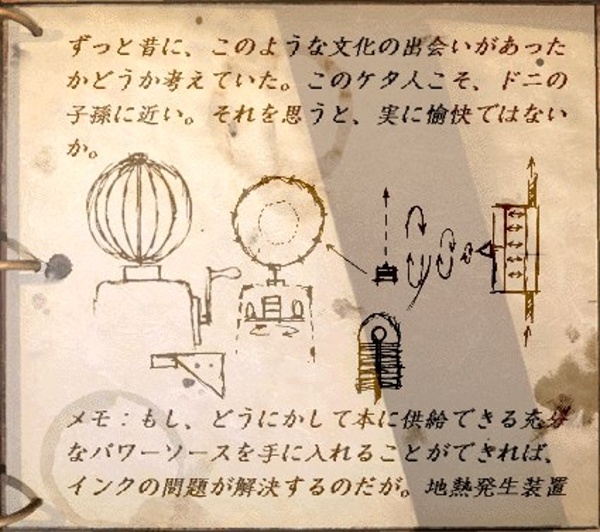 ずっと昔に、このような文化の出会いがあった
かどうか考えていた。このケタ人こそ、ドニの
子孫に近い。それを思うと、実に愉快ではない
か。
メモ：もし、どうにかして本に供給できる充分
なパワーソースを手に入れることができれば、
インクの問題が解決するのだが。地熱発生装置